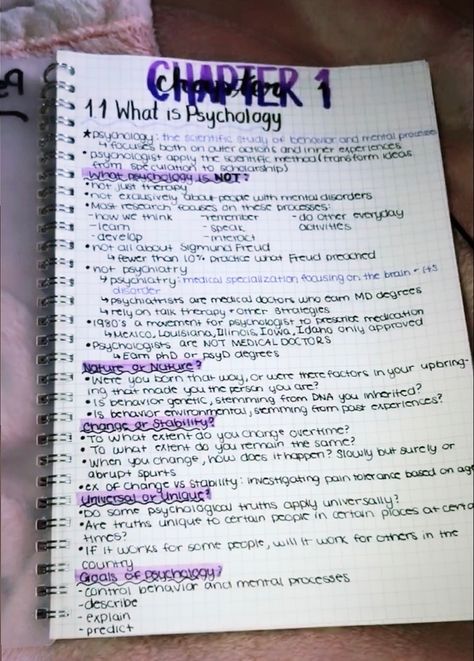 CHAPTER 1
chapter
1.1 What is Psychology
★psychology: the scientific study of behavior and mental processes
↳ focuses both on outer actions and inner experiences
• psychologist apply the scientific method (transform ideas
from speculation to scholarship)
What psychology is NOT?
• not just therapy
• not exclusively about people with mental disorders
• Most research focuses on these processes:
-how we think -remember -do other everyday
-learn -speak activities
-develop -interact
• not all about Sigmund Freud
↳ fewer than 10% practice what Freud preached
• not psychiatry
↳ psychiatry: medical specialization focusing on the brain + its
disorder
↳ psychiatrists are medical doctors who earn MD degrees
↳ rely on talk therapy + other strategies
• 1980's a movement for psychologist to prescribe medication
↳ Mexico, Louisiana, Illinois, Iowa, Idaho only approved
• Psychologists are NOT MEDICAL DOCTORS
↳ Earn phD or psyD degrees
Nature or Nurture?
• Were you born that way, or were there factors in your upbring-
ing that made you the person you are?
• Is behavior genetic, stemming from DNA you inherited?
• Is behavior environmental, stemming from past experiences?
Change or Stability?
• To what extent do you change overtime?
• To what extent do you remain the same?
• When you change, how does it happen? Slowly but surely or
abrupt spurts
• ex of change vs stability: investigating pain tolerance based on age
Universal or Unique?
• Do some psychological truths apply universally?
• Are truths unique to certain people in certain places at certa
times?
• If it works for some people, will it work for others in the
country
Goals of Psychology?
-control behavior and mental processes
-describe
-explain
-predict